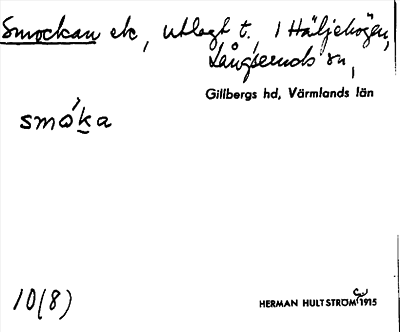 Smockan etc, utlagt t. 1 Häljebögen,
Långseruds sn,
Gillbergs hd, Värmlands län
smóka
10(8)
HERMAN HULTSTRÖM 1915